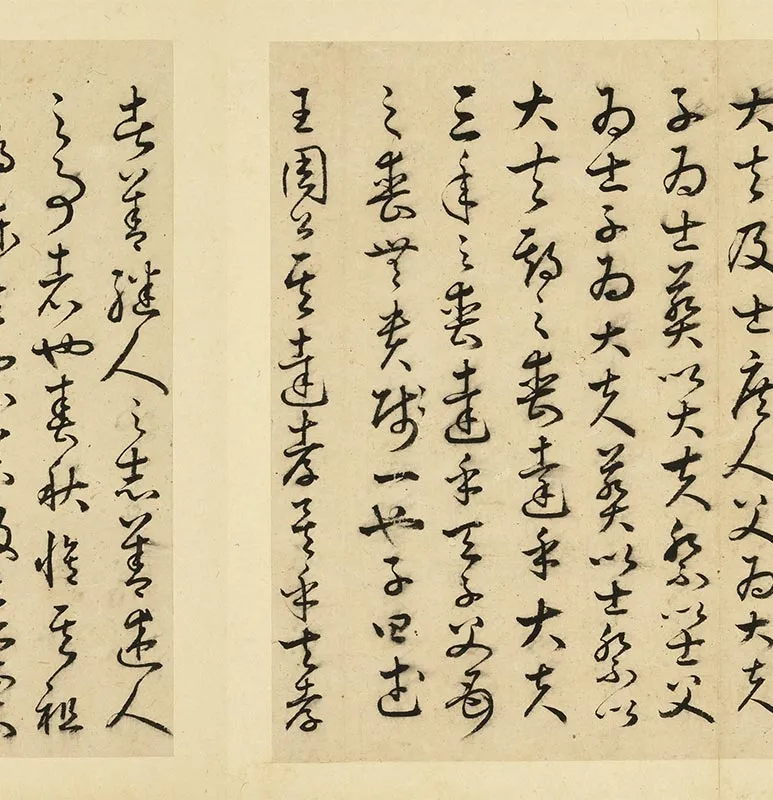 大夫及士庶人父為大夫
子為士葬以大夫祭以士父
為士子為大夫葬以士祭以
大夫期之喪達乎大夫
三年之喪達乎天子父母
之喪無貴賤一也子曰武
王周公其達孝矣乎夫孝
者善繼人之志善述人
之事者也春秋脩其祖